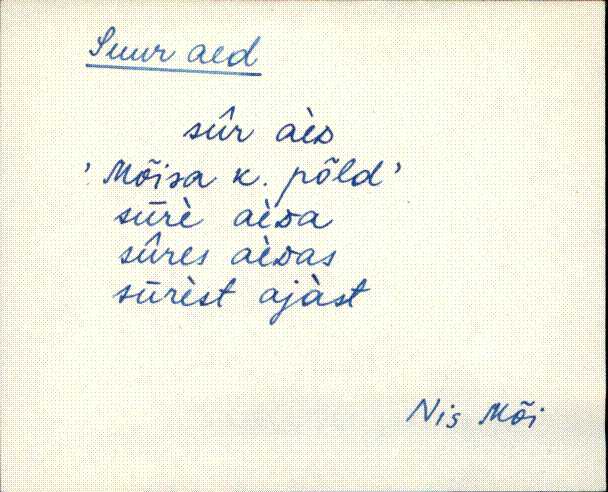 Suur aed
sûr aèᴅ
'Mõisa k. põld'
sūrè aèᴅa
sûres aèᴅas
sūrèst ajàst
Nis Mõi